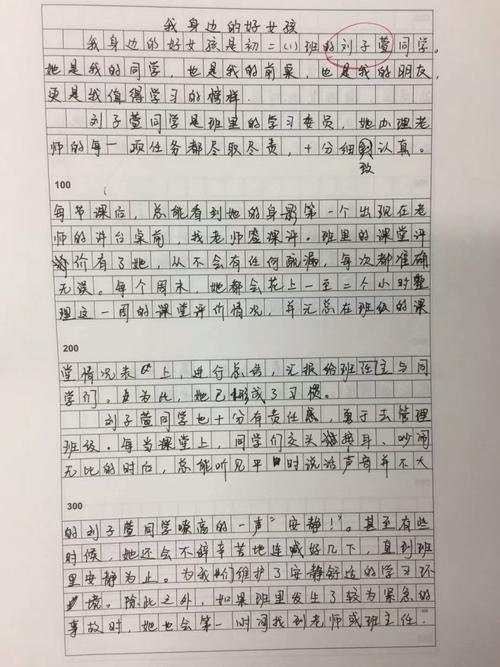 我身边的好女孩
我身边的好女孩是初二(1)班的刘子萱同学。
她是我的同学，也是我的前桌，也是我的朋友，
更是我值得学习的榜样.
刘子萱同学是班里的学习委员，她办理老
师的每一项任务都尽职尽责，十分细致认真。
100
每节课后，总能看到她的身影第一个出现在老
师的讲台桌前，找老师签课评.班里的课堂评
价有了她，从不会有任何疏漏，每次都准确
无误。每个周末，她都会花上一至二个小时整
理这一周的课堂评价情况，并汇总在班级的课
200
堂情况表上，进行总结，汇报给班任主与同
学们。为此，她已形成了习惯。
刘子萱同学也十分有责任感，勇于去管理
班级。每当课堂上，同学们交头接耳、吵闹
无比的时后，总能听见平时说话声音并不大
300
的刘子萱同学嗓高的一声"安静！"。甚至有些
时候，她还会不辞辛苦地连喊好几下，直到班
里安静为止。为我们维护了安静舒适的学习环
境。除此之外，如果班里发生了较为紧急的
事故时，她也会第一时间找到老师或班主任.